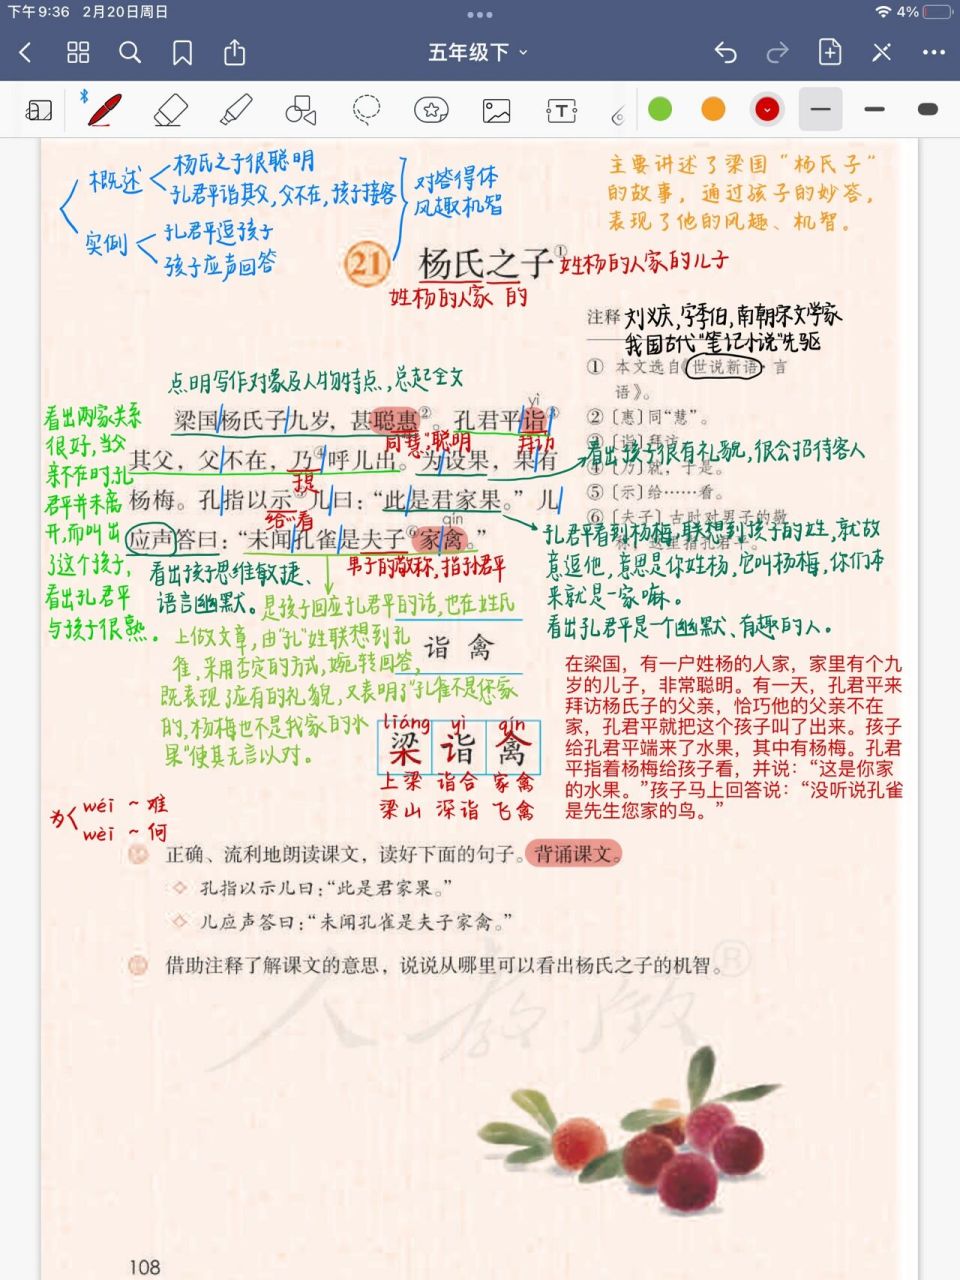 下午9:36 2月20日周日
4%
五年级下
概述
杨氏之子很聪明
孔君平诣其父，父不在，孩子接客
实例
孔君平逗孩子
孩子应声回答
对答得体
风趣机智
主要讲述了梁国“杨氏子”
的故事，通过孩子的妙答，
表现了他的风趣、机智。
21 杨氏之子①
姓杨的人家 的
姓杨的人家的儿子
注释
刘义庆，字季伯，南朝宋文学家
我国古代“笔记小说”先驱
① 本文选自《世说新语·言
语》。
②〔惠〕同“慧”。
③〔诣〕拜访。
④〔乃〕就，于是。
⑤〔示〕给……看。
⑥〔夫子〕古时对男子的敬
称，这里指孔君平。
点明写作对象及人物特点，总起全文
yì
梁国杨氏子九岁，甚聪惠②。孔君平诣③
同“慧”，聪明
拜访
其父，父不在，乃④呼儿出。为设果，果有
于是
杨梅。孔指以示⑤儿曰：“此是君家果。”儿
给…看
qín
应声答曰：“未闻孔雀是夫子⑥家禽。”
男子的敬称，指孙君平
看出两家关系
很好，当父
亲不在时，孔
君平并未离
开，而叫出
了这个孩子，
看出孔君平
与孩子很熟。
看出孩子很有礼貌，很会招待客人
孔君平看到杨梅，联想到孩子的姓，就故
意逗他，意思是你姓杨，它叫杨梅，你们本
来就是一家嘛。
看出孔君平是一个幽默、有趣的人。
看出孩子思维敏捷、
语言幽默。
是孩子回应孔君平的话，也在姓氏
上做文章，由“孔”姓联想到孔
雀，采用否定的方式，婉转回答，
既表现了应有的礼貌，又表明了“孔雀不是您家
的，杨梅也不是我家的水
果”使其无言以对。
诣 禽
liáng yì qín
梁 诣 禽
上梁 诣合 家禽
梁山 深诣 飞禽
在梁国，有一户姓杨的人家，家里有个九
岁的儿子，非常聪明。有一天，孔君平来
拜访杨氏子的父亲，恰巧他的父亲不在
家，孔君平就把这个孩子叫了出来。孩子
给孔君平端来了水果，其中有杨梅。孔君
平指着杨梅给孩子看，并说：“这是你家
的水果。”孩子马上回答说：“没听说孔雀
是先生您家的鸟。”
为
wéi ~ 难
wèi ~ 何
正确、流利地朗读课文，读好下面的句子。背诵课文。
孔指以示儿曰：“此是君家果。”
儿应声答曰：“未闻孔雀是夫子家禽。”
借助注释了解课文的意思，说说从哪里可以看出杨氏之子的机智。
人教版®
108